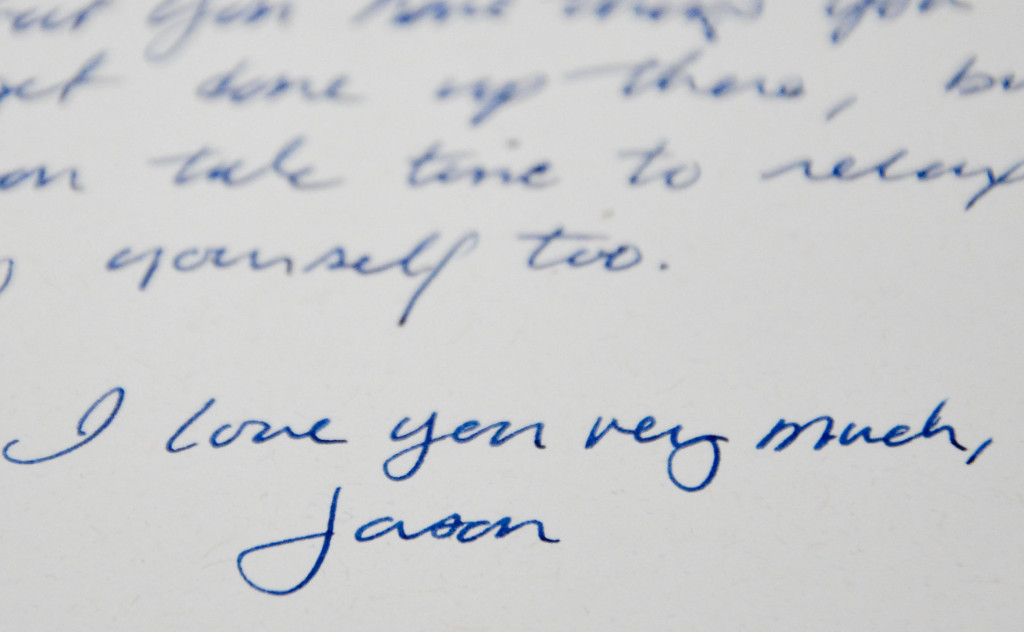 you have things you
get done up there, bu
on take time to relax
yourself too.
I love you very much,
Jason